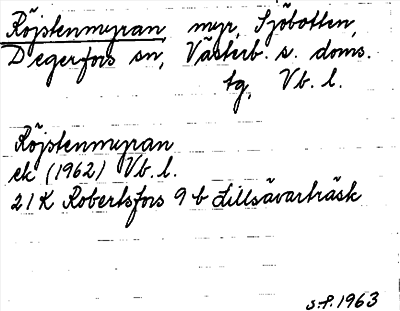 Röjstenmyran, myr, Sjöbotten,
Degerfors sn, Västerb. s. doms.
tg, Vb. l.
Röjstenmyran
ek (1962) Vb. l.
21 K Robertsfors 9 b Lillsävarträsk
S.P. 1963